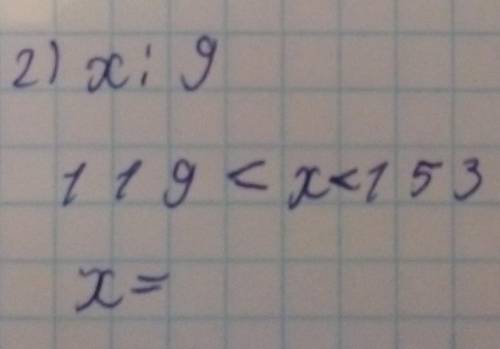 2) x⋮9
119 < x < 153
x =